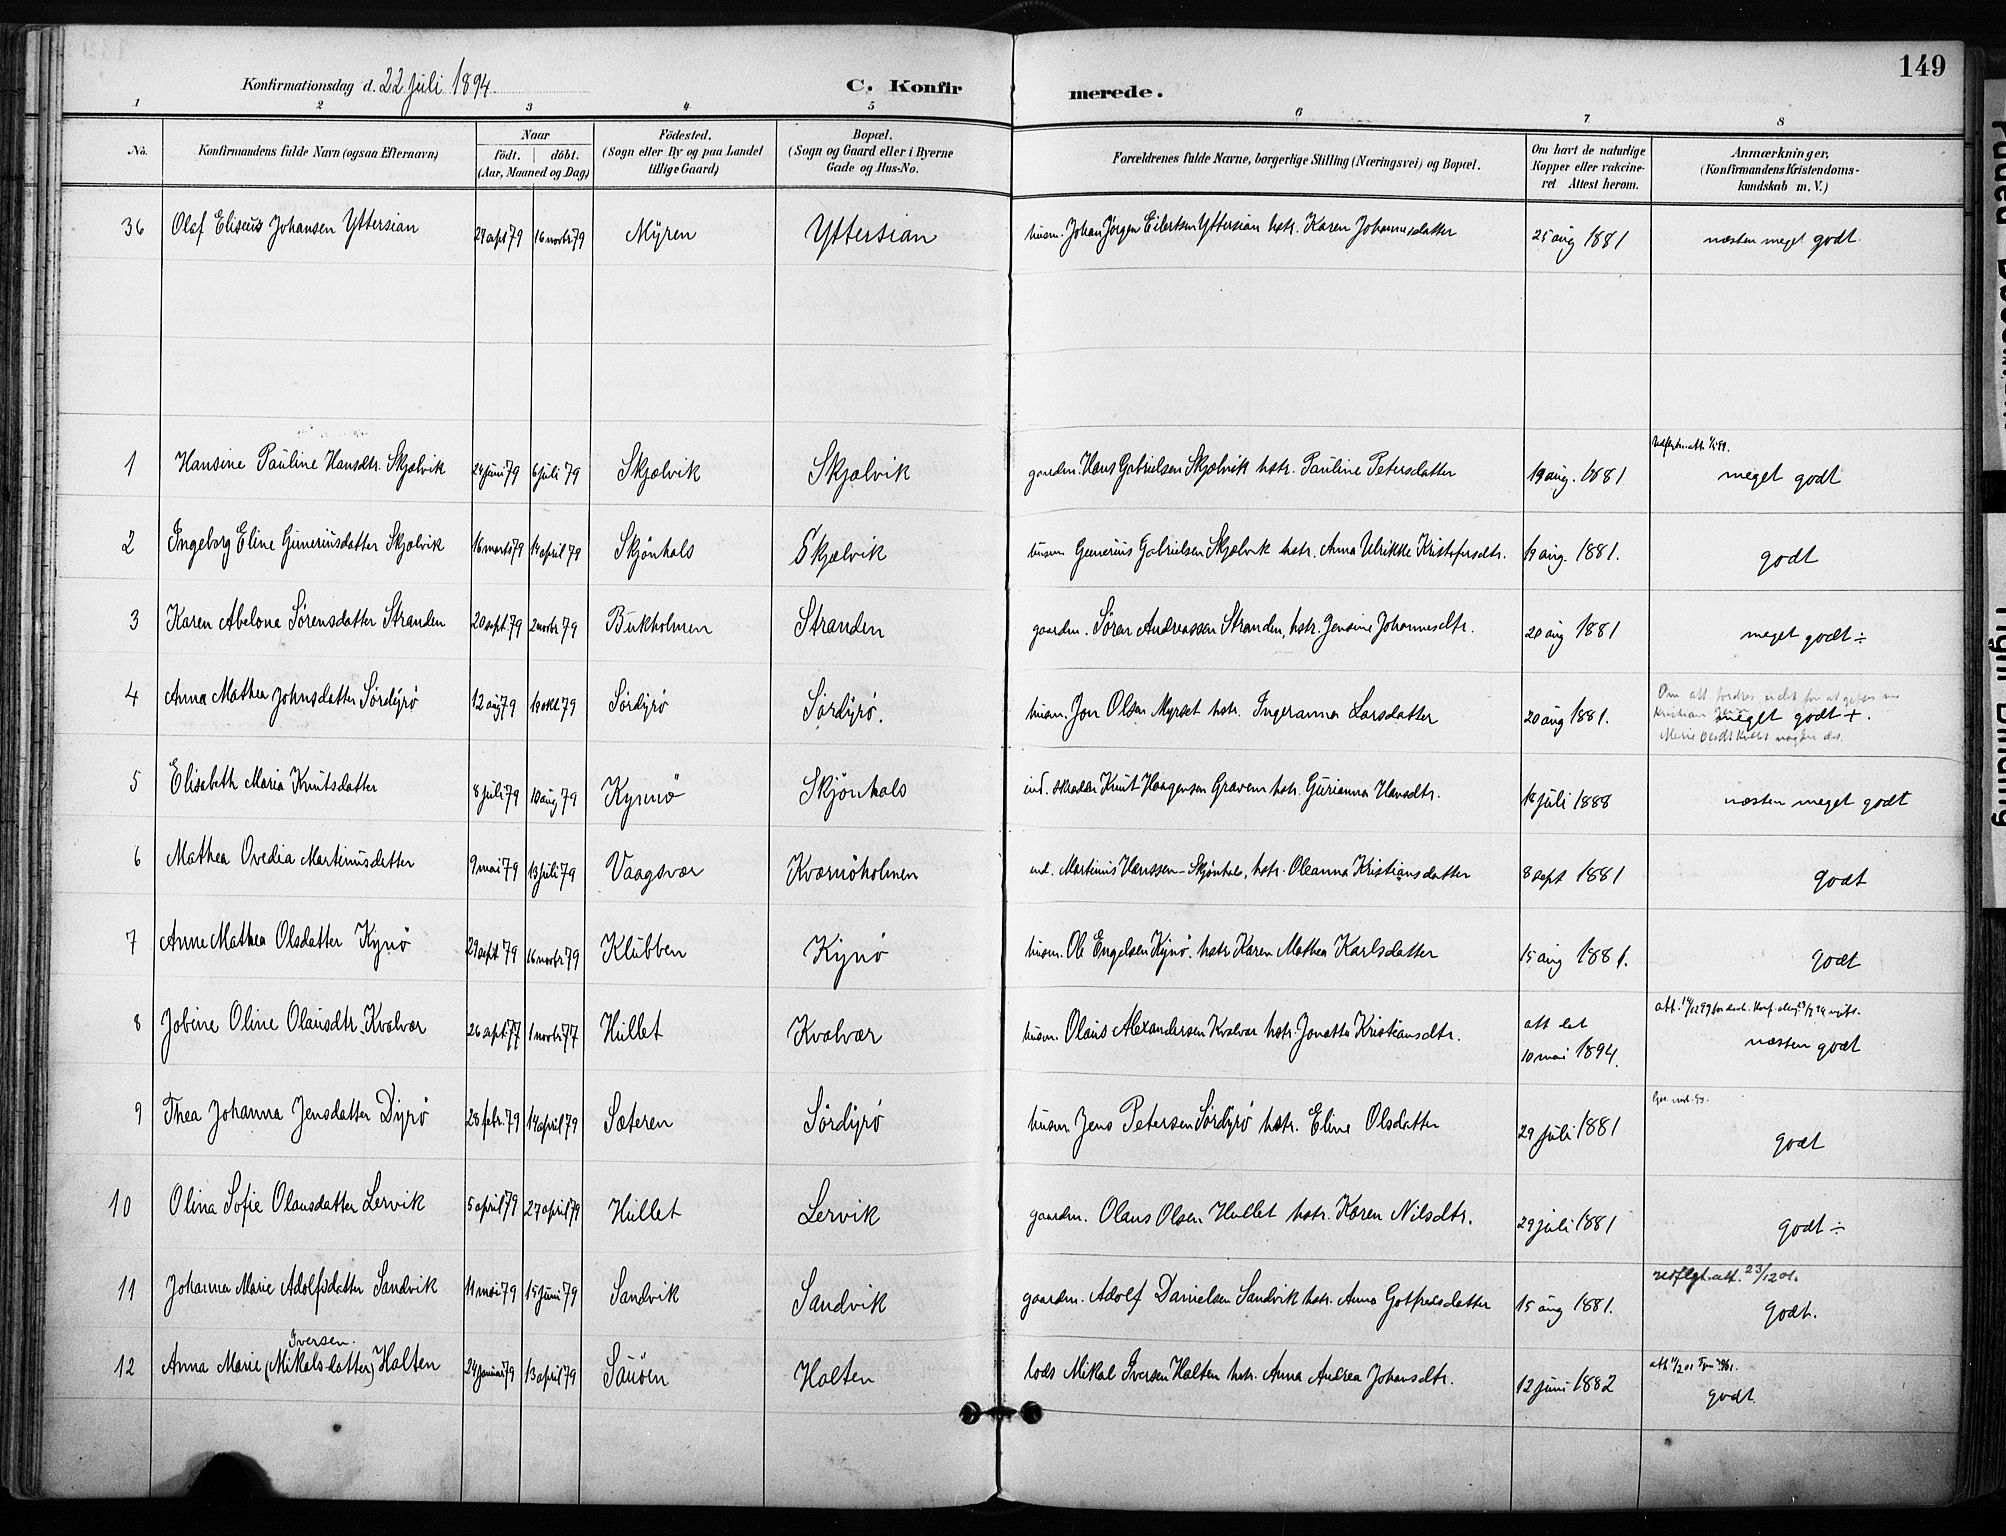 149
Konfirmationsdag d. 22 Juli 1894.
C. Konfirmerede.
1 2 3 4 5 6 7 8
No. Konfirmandens fulde Navn (ogsaa Efternavn) Naar født. døbt. (Aar, Maaned og Dag) Födested. (Sogn eller By og paa Landet tillige Gaard) Bopæl. (Sogn og Gaard eller i Byerne Gade og Hus-No. Forældrenes fulde Navne, borgerlige Stilling (Næringsvei) og Bopæl. Om havt de naturlige Kopper eller vakcineret Attest herom. Anmærkninger. (Konfirmandens Kristendomskundskab m. V.)
36 Olaf Eliseus Johansen Yttersian 29 sept 79 16 novbr 79 Myren Yttersian husm. Johan Jørgen Eilertsen Yttersian hstr. Karen Johannesdatter 25 aug 1881 næsten meget godt.
1 Hansine Pauline Hansdtr. Skjælvik 24 juni 79 6 juli 79 Skjælvik Skjælvik gaardm. Hans Gabrielsen Skjælvik hstr. Pauline Petersdatter 19 aug. 1881 meget godt
2 Ingeborg Eline Guneriusdatter Skjælvik 16 marts 79 14 april 79 Skjønhals Skjælvik husm Gunerius Gabrielsen Skjælvik hstr. Anna Ulrikke Kristofersdtr. 19 aug. 1881. godt
3 Karen Abelona Sørensdatter Stranden 20 sept. 79 2 novbr 79 Bukholmen Stranden gaardm. Søren Andreassen Stranden, hstr. Jensine Johannesdtr. 20 aug 1881 meget godt ÷
4 Anna Mathea Johnsdatter Sørdyrø 12 aug 79 19 okt 79 Sørdyrø Sørdyrø. husm. Jon Olsen Myrset hstr. Ingeranna Larsdatter 20 aug 1881. meget godt +.
5 Elisabeth Maria Knutsdatter 8 juli 79 10 aug 79 Kyrnø Skjønhals ind. skrædder Knut Haagensen Gravem hstr. Gurianna Hansdtr. 18 juli 1888 næsten meget godt
6 Mathea Ovedia Martinusdatter 9 mai 79 13 juli 79 Vaagsvær Kværnøholmen ind. Martinus Hanssen - Skjønhals, hstr. Oleanna Kristiansdatter 8 sept 1881 godt
7 Anne Mathea Olsdatter Kynø 29 sept 79 16 novbr 79 Klubben Kynø husm. Ole Engelsen Kynø. hstr Karen Mathea Karlsdatter 15 aug 1881. godt
8 Jobine Oline Olausdtr. Kvalvær 26 sept. 77 1 novbr 77 Hullet Kvalvær husm. Olaus Alexandersen Kvalvær hstr. Jonetta Kristiansdtr. att. 10 mai 1894. næsten godt
9 Thea Johanna Jensdatter Dyrø 28 febr. 79 14 april 79 Sæteren Sørdyrø husm Jens Petersen Sørdyrø hstr. Eline Olsdatter 29 juli 1881 godt
10 Olina Sofie Olausdatter Lervik 5 april 79 27 april 79 Hullet Lervik gaardm. Olaus Olsen Hullet hstr. Karen Nilsdtr. 29 juli 1881 godt ÷
11 Johanna Marie Adolfsdatter Sandvik 11 mai 79 15 juni 79 Sandvik Sandvik gaardm. Adolf Danielsen Sandvik hstr. Anna Gotfredsdatter 15 aug 1881. att. 23/12 01. godt.
Iversen.
12 Anna Marie (Mikalsdatter) Halten 24 januar 79 13 april 79 Sauøen Halten lods Mikal Iversen Halten hstr. Anna Andrea Johansdtr. 12 juni 1882 godt.